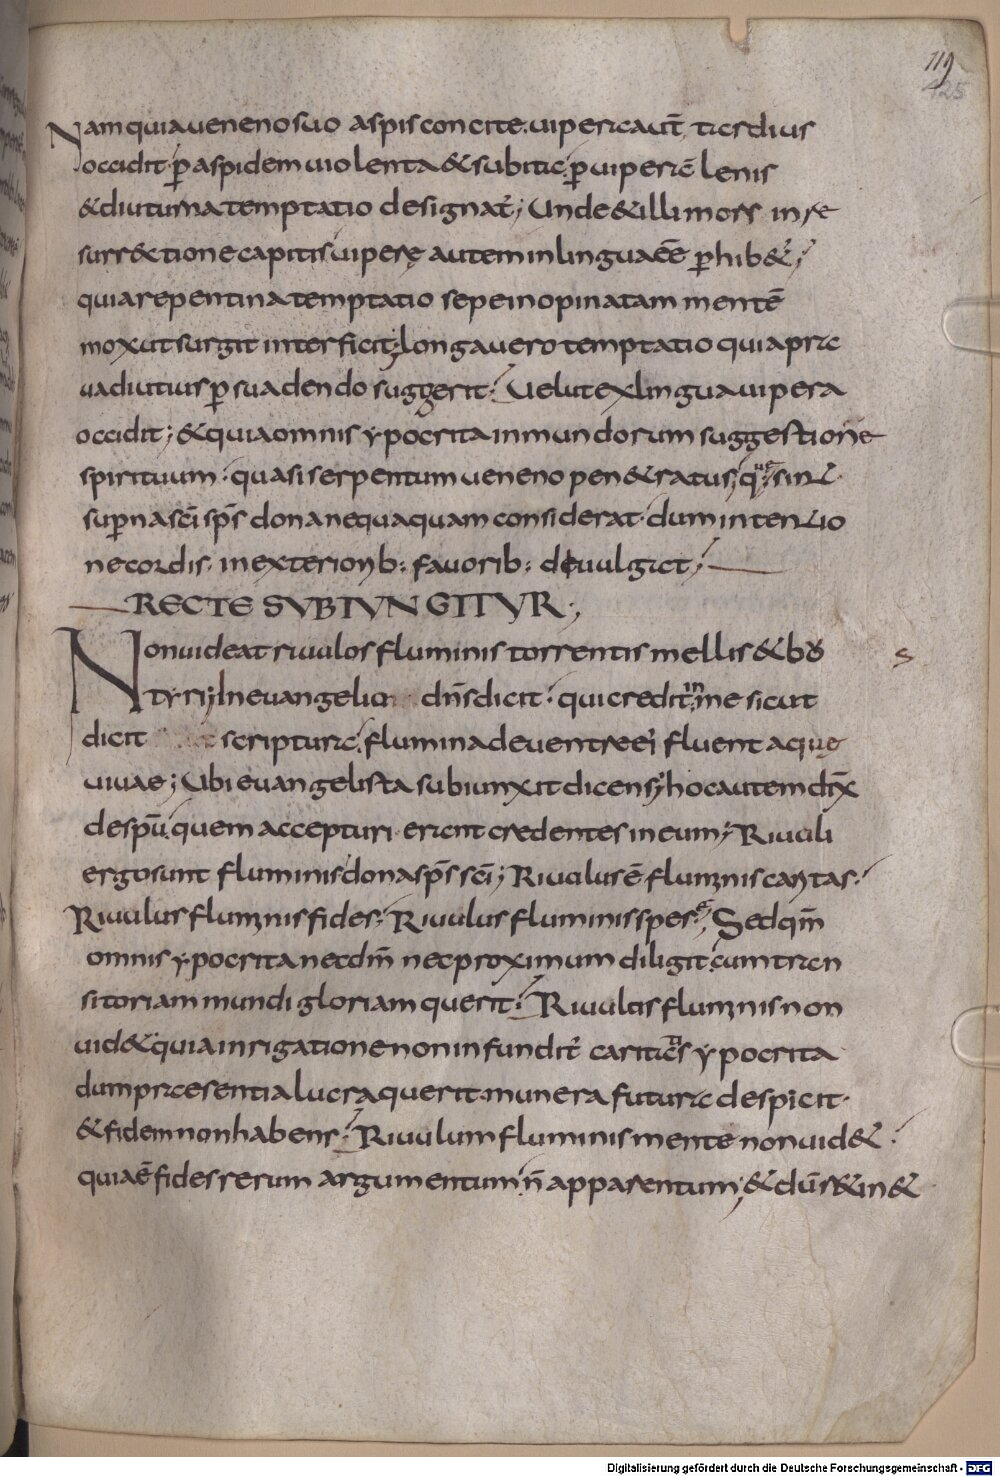 119
125
Nam quia ueneno suo aspis concite. uipera aut̄ tardius
occidit. p̄ aspidem uiolenta & subita. p̄ uiperā lenis
& diuturna temptatio designat᷑; Unde & illi mors in re
surrectione capitis uiperę autem in lingua eē p̄hib&;
quia repentina temptatio sepe inopinatam mentē
mox ut surgit interficit; longa uero temptatio quia pra
ua diutius p̄suadendo suggerit. Uelut ex lingua uipera
occidit; & quia omnis ypocrita inmundorum suggestione
spirituum. quasi serpentum ueneno pen&ratus; q
sup̄na sc̄i sp̄s dona nequaquam considerat. dum intentio
ne cordis. in exteriorib: fauorib: deuulgat;
RECTE SVBIVNGITVR;
Non uideat riuulos fluminis torrentis mellis & bu
tyri; In euangelio dn̄s dicit. qui credit in me sicut
dicit scriptura. flumina de uentre ei᷒ fluent aquę
uiuae; Ubi euangelista subiunxit dicens; hoc autem dix̄
de sp̄u. quem accepturi erant credentes in eum; Riuuli
ergo sunt fluminis dona sp̄s sc̄i; Riuulus ē fluminis caritas.
Riuulus fluminis fides. Riuulus fluminis spes ē; Sed qm̄
omnis ypocrita nec dm̄ nec proximum diligit. cum tran
sitoriam mundi gloriam querit. Riuulus fluminis non
uid&. quia inrigatione non infundit᷑ caritatis ypocrita
dum praesentia lucra querit. munera futura despicit.
& fidem non habens. Riuulum fluminis mente non uid&.
quia ē fides rerum argumentum n̄ apparentum; & dūr&in&
s
Digitalisierung gefördert durch die Deutsche Forschungsgemeinschaft - DFG